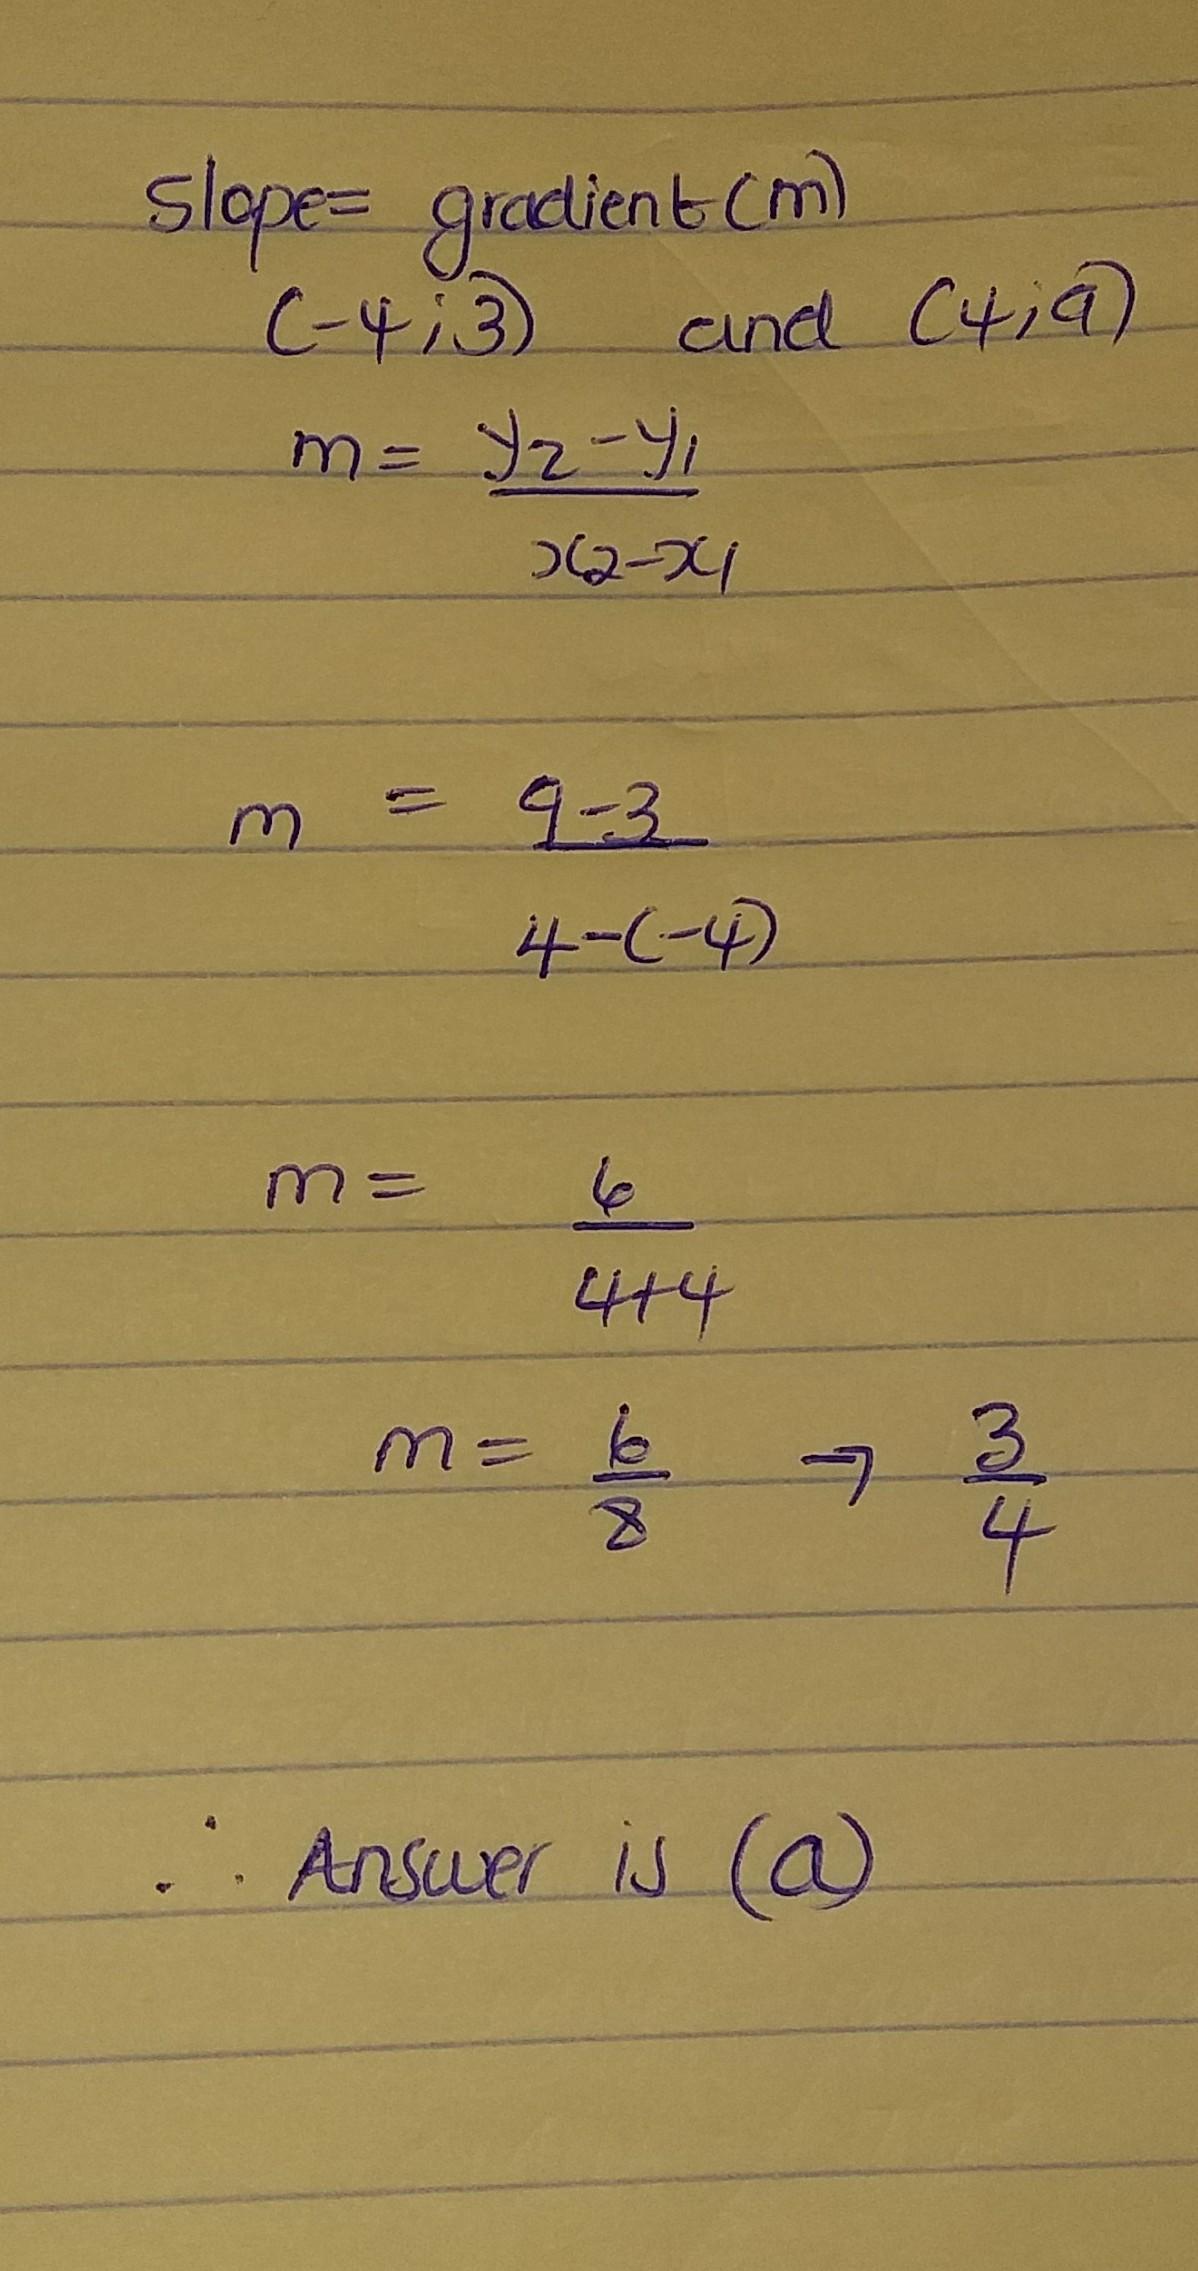 Slope= gradient (m)
(-4;3) and (4;9)
m= y2-y1
x2-x1
m = 9-3
4-(-4)
m= 6
4+4
m= 6/8 → 3/4
∴ Answer is (a)